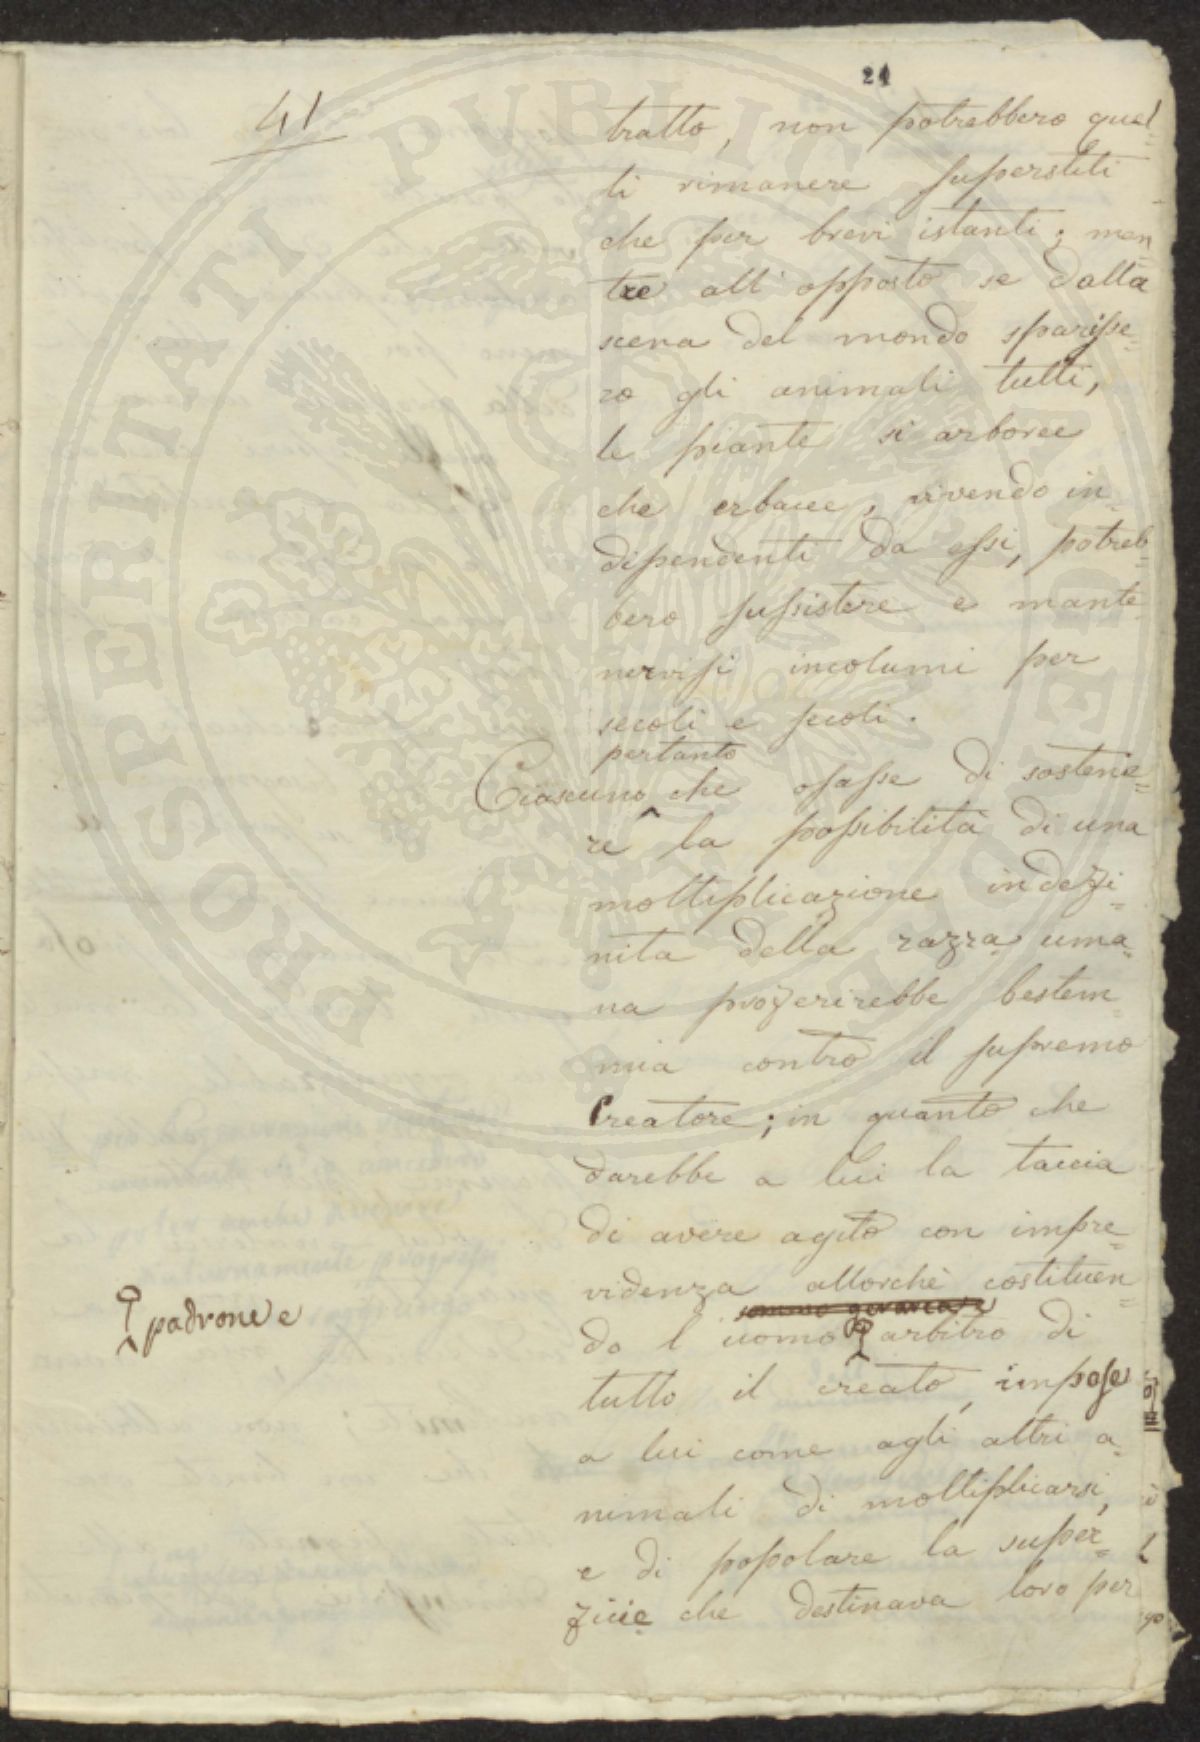 21
41
tratto, non potrebbero quel=
li rimanere superstiti
che per brevi istanti; men=
tre all' opposto se dalla
scena del mondo sparisse=
ro gli animali tutti,
le piante sì arboree
che erbacee, vivendo in=
dipendenti da essi, potreb=
bero sussistere e mante=
nervisi incolumi per
secoli e secoli.
pertanto
Ciascuno che osasse di sostene=
re la possibilità di una
moltiplicazione indefi=
nita della razza uma=
na proferirebbe bestem=
mia contro il supremo
Creatore; in quanto che
darebbe a lui la taccia
di avere agito con impre=
videnza allorchè costituen=
sommo gerarca e
do l'uomo arbitro di
padrone e
tutto il creato, impose
a lui come agli altri a=
nimali di moltiplicarsi,
e di popolare la super=
ficie che destinava loro per
PROSPERITATI PUBLICAE AUGENDAE